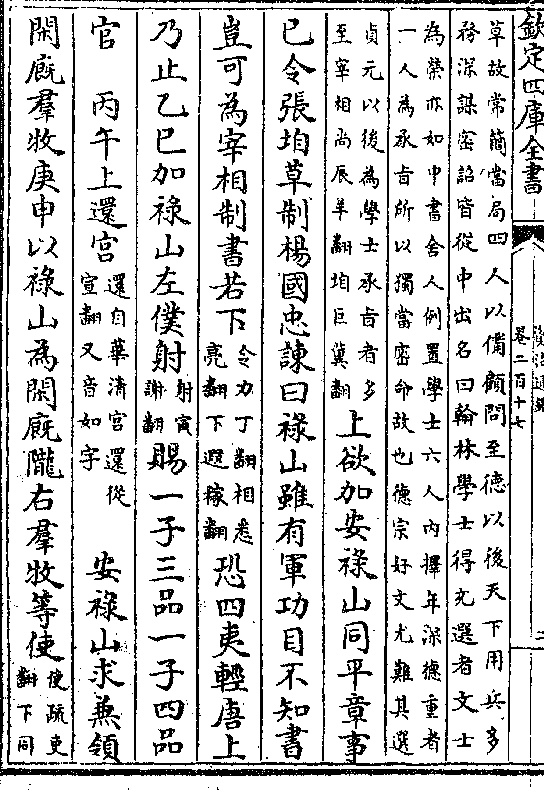 欽定四庫全書
資治通鑑
卷二百十七
二
草故常簡當局四人以備顧問至德以後天下用兵多
務深謀密詔皆從中出名曰翰林學士得充選者文士
為榮亦如中書舍人例置學士六人內擇年深德重者
一人為承旨所以獨當密命故也德宗好文尤難其選
貞元以後為學士承旨者多
至宰相尚辰羊翻垍巨冀翻
上欲加安祿山同平章事
已令張垍草制楊國忠諫曰祿山雖有軍功目不知書
豈可為宰相制書若下
令力丁翻相悉
亮翻下遐稼翻
恐四夷輕唐上
乃止乙巳加祿山左僕射
射寅
謝翻
賜一子三品一子四品
官 丙午上還宮
還自華清宮還從
宣翻又音如字
安祿山求兼領
閑廐羣牧庚申以祿山為閑廐隴右羣牧等使
使疏吏
翻下同